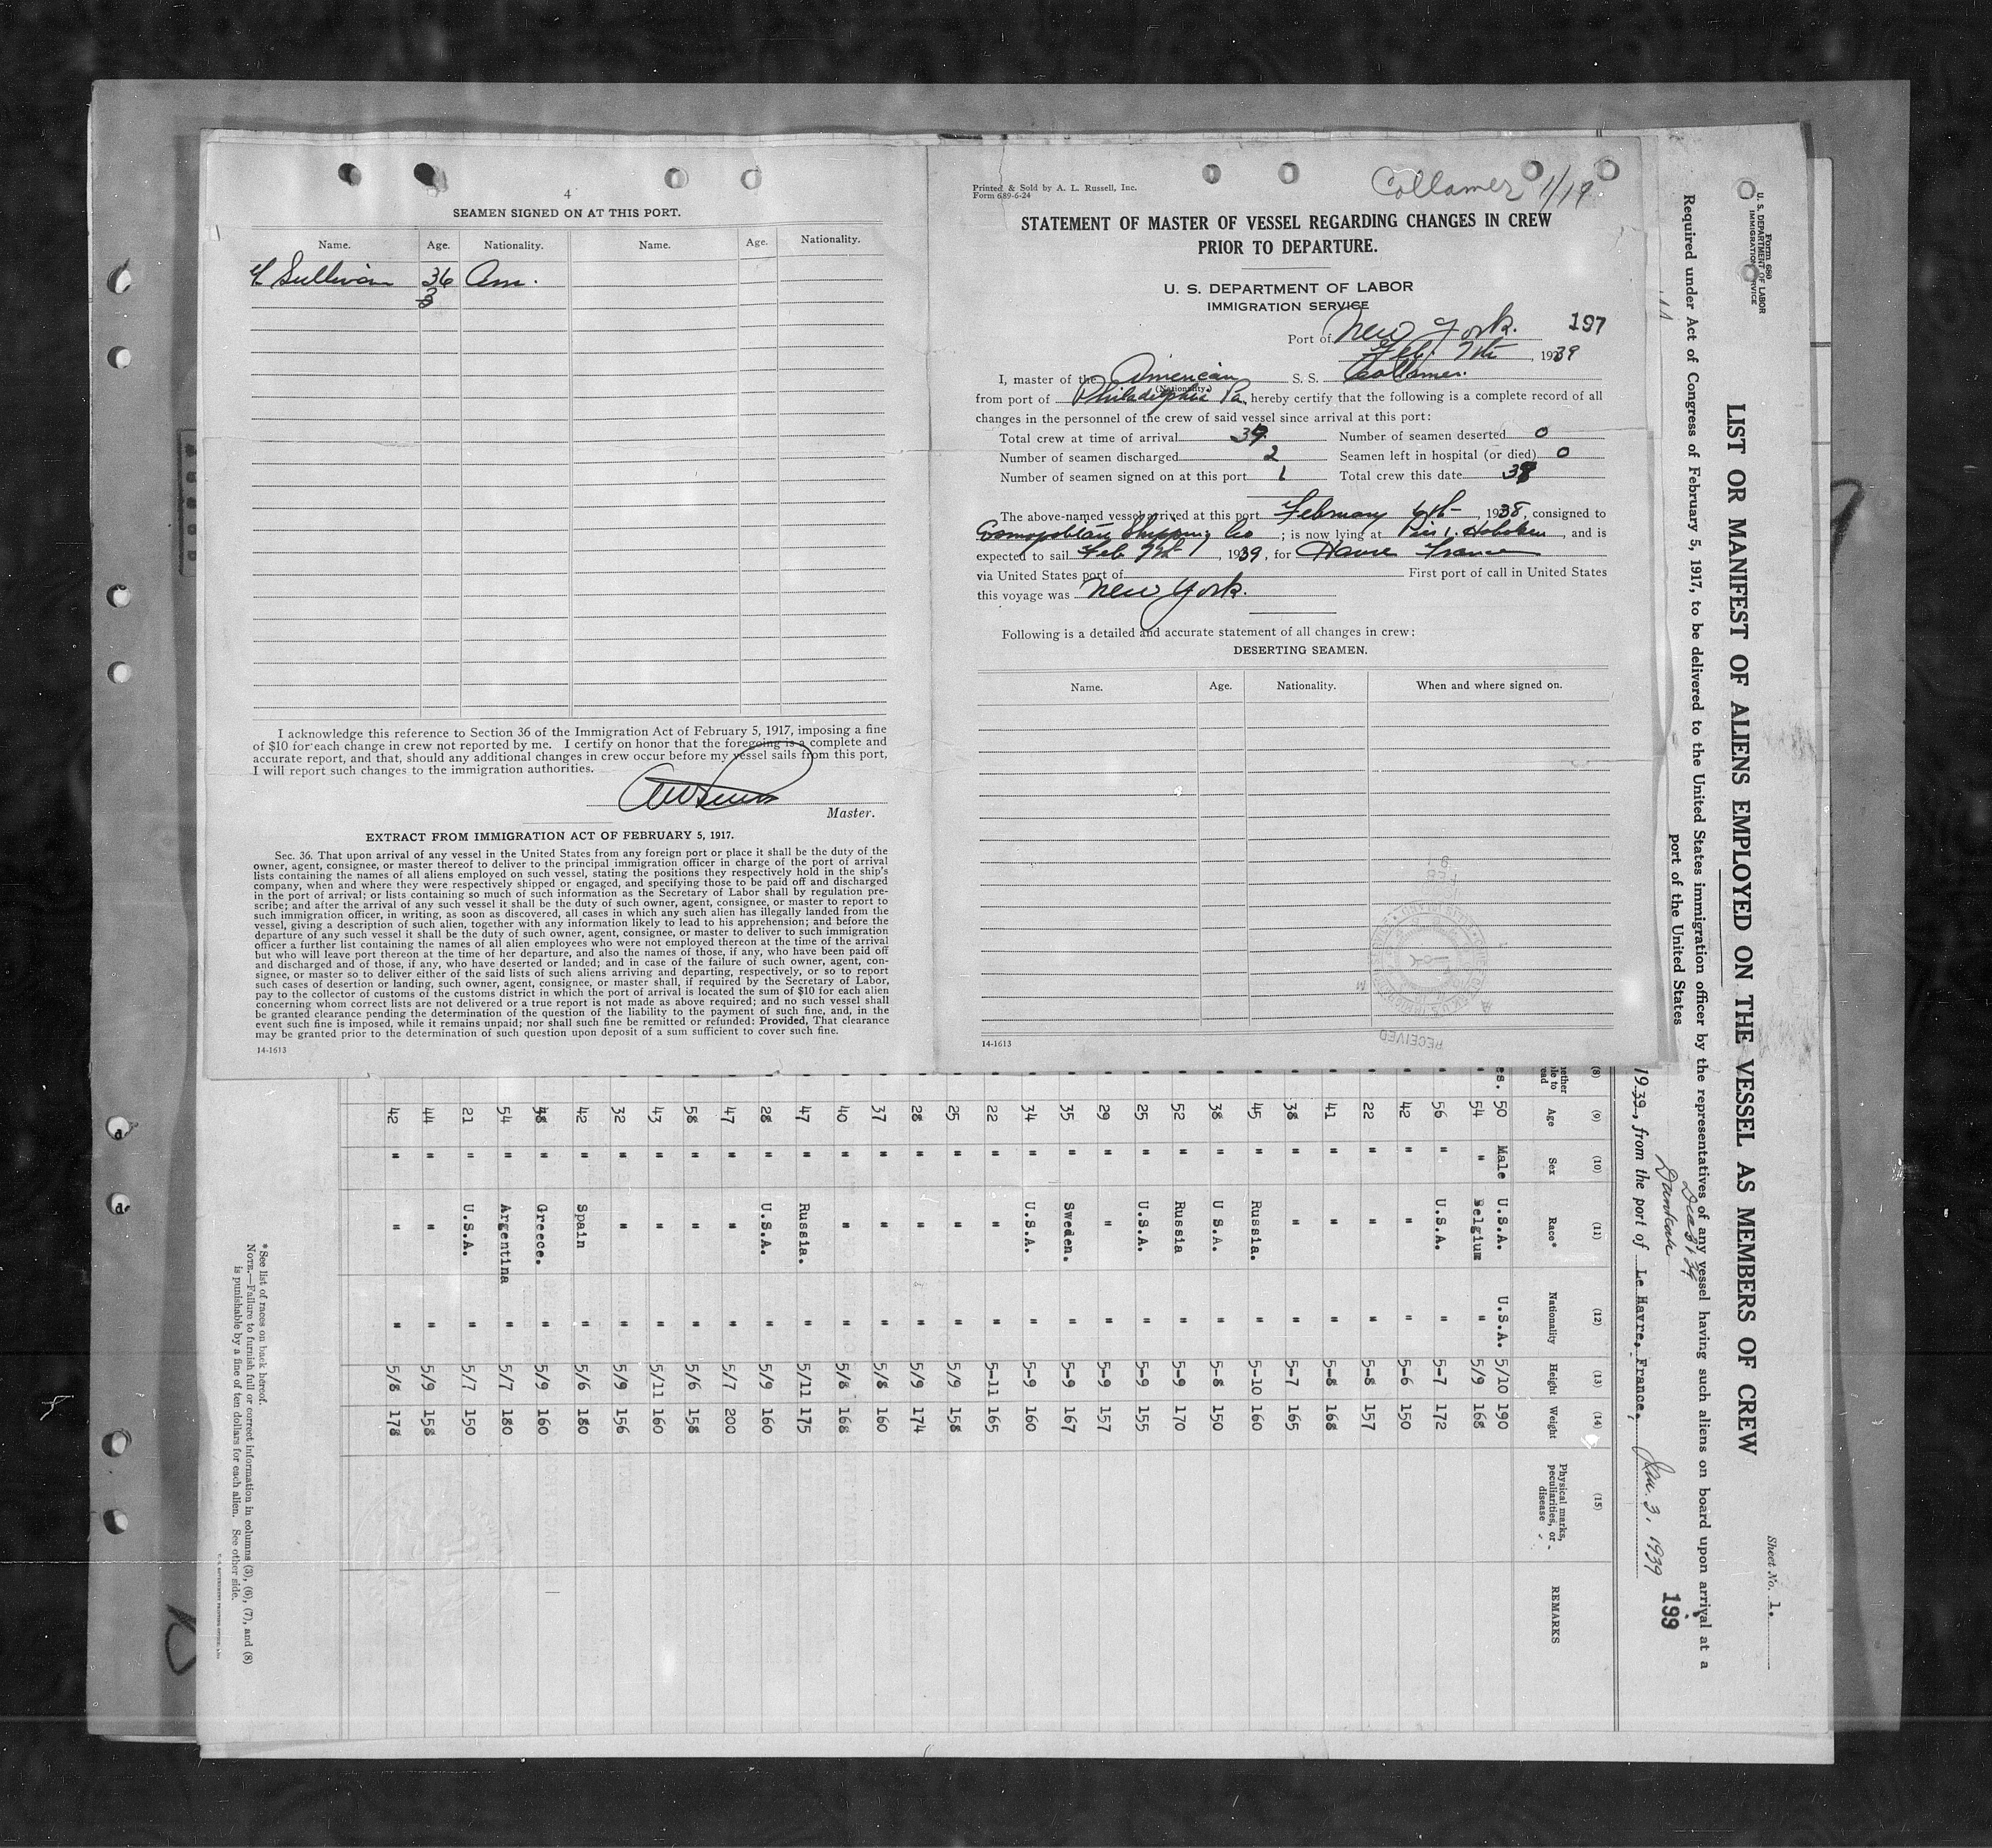 4
SEAMEN SIGNED ON AT THIS PORT.
Name. Age. Nationality. Name. Age. Nationality.
Sullivan 36 Am.
3
I acknowledge this reference to Section 36 of the Immigration Act of February 5, 1917, imposing a fine
of $10 for each change in crew not reported by me. I certify on honor that the foregoing is a complete and
accurate report, and that, should any additional changes in crew occur before my vessel sails from this port,
I will report such changes to the immigration authorities.
Master.
EXTRACT FROM IMMIGRATION ACT OF FEBRUARY 5, 1917.
Sec. 36. That upon arrival of any vessel in the United States from any foreign port or place it shall be the duty of the
owner, agent, consignee, or master thereof to deliver to the principal immigration officer in charge of the port of arrival
lists containing the names of all aliens employed on such vessel, stating the positions they respectively hold in the ship's
company, when and where they were respectively shipped or engaged, and specifying those to be paid off and discharged
in the port of arrival; or lists containing so much of such information as the Secretary of Labor shall by regulation pre-
scribe; and after the arrival of any such vessel it shall be the duty of such owner, agent, consignee, or master to report to
such immigration officer, in writing, as soon as discovered, all cases in which any such alien has illegally landed from the
vessel, giving a description of such alien, together with any information likely to lead to his apprehension; and before the
departure of any such vessel it shall be the duty of such owner, agent, consignee, or master to deliver to such immigration
officer a further list containing the names of all alien employees who were not employed thereon at the time of the arrival
but who will leave port thereon at the time of her departure, and also the names of those, if any, who have been paid off
and discharged and of those, if any, who have deserted or landed; and in case of the failure of such owner, agent, con-
signee, or master so to deliver either of the said lists of such aliens arriving and departing, respectively, or so to report
such cases of desertion or landing, such owner, agent, consignee, or master shall, if required by the Secretary of Labor,
pay to the collector of customs of the customs district in which the port of arrival is located the sum of $10 for each alien
concerning whom correct lists are not delivered or a true report is not made as above required; and no such vessel shall
be granted clearance pending the determination of the question of the liability to the payment of such fine, and, in the
event such fine is imposed, while it remains unpaid; nor shall such fine be remitted or refunded: Provided, That clearance
may be granted prior to the determination of such question upon deposit of a sum sufficient to cover such fine.
14-1613
Printed & Sold by A. L. Russell, Inc.
Form 689-6-24
Collamer 1/19
STATEMENT OF MASTER OF VESSEL REGARDING CHANGES IN CREW
PRIOR TO DEPARTURE.
U. S. DEPARTMENT OF LABOR
IMMIGRATION SERVICE
Port of New York. 197
Feb. 7th, 1939
I, master of the American S. S. Collamer.
(Nationality.)
from port of Philadelphia Pa, hereby certify that the following is a complete record of all
changes in the personnel of the crew of said vessel since arrival at this port:
Total crew at time of arrival 39 Number of seamen deserted 0
Number of seamen discharged 2 Seamen left in hospital (or died) 0
Number of seamen signed on at this port 1 Total crew this date 38
The above-named vessel arrived at this port February 6th, 1938, consigned to
Cosmopolitan Shipping Co; is now lying at Pier 1. Hoboken, and is
expected to sail Feb 7th, 1939, for Havre France
via United States port of First port of call in United States
this voyage was New York.
Following is a detailed and accurate statement of all changes in crew:
DESERTING SEAMEN.
Name. Age. Nationality. When and where signed on.
RECEIVED
14-1613
Form 680
U. S. DEPARTMENT OF LABOR
IMMIGRATION SERVICE
Sheet No. 1.
LIST OR MANIFEST OF ALIENS EMPLOYED ON THE VESSEL AS MEMBERS OF CREW
Required under Act of Congress of February 5, 1917, to be delivered to the United States immigration officer by the representatives of any vessel having such aliens on board upon arrival at a
port of the United States
Dec 31 39
Dunkirk
1939, from the port of Le Havre, France, Jan. 3. 1939 199
(8) (9) (10) (11) (12) (13) (14) (15)
Age Sex Race* Nationality Height Weight Physical marks, peculiarities, or disease REMARKS
es. 50 Male U.S.A. U.S.A. 5/10 190
" 54 " Belgium " 5/9 168
" 56 " U.S.A. " 5-7 172
" 42 " " " 5-6 150
" 22 " " " 5-8 157
" 41 " " " 5-8 168
" 38 " " " 5-7 165
" 45 " Russia. " 5-10 160
" 38 " U S.A. " 5-8 150
" 52 " Russia " 5-9 170
" 25 " U.S.A. " 5-9 155
" 29 " " " 5-9 157
" 35 " Sweden. " 5-9 167
" 34 " U.S.A. " 5-9 160
" 22 " " " 5-11 165
" 25 " " " 5/9 158
" 28 " " " 5/9 174
" 37 " " " 5/8 160
" 40 " " " 5/8 168
" 47 " Russia. " 5/11 175
" 28 " U.S.A. " 5/9 160
" 47 " " " 5/7 200
" 58 " " " 5/6 158
" 43 " " " 5/11 160
" 32 " " " 5/9 156
" 42 " Spain " 5/6 180
" 38 " Greece. " 5/9 160
" 54 " Argentina " 5/7 180
" 21 " U.S.A. " 5/7 150
" 44 " " " 5/9 158
" 42 " " " 5/8 178
* See list of races on back hereof.
NOTE.—Failure to furnish full or correct information in columns (3), (6), (7), and (8)
is punishable by a fine of ten dollars for each alien. See other side.